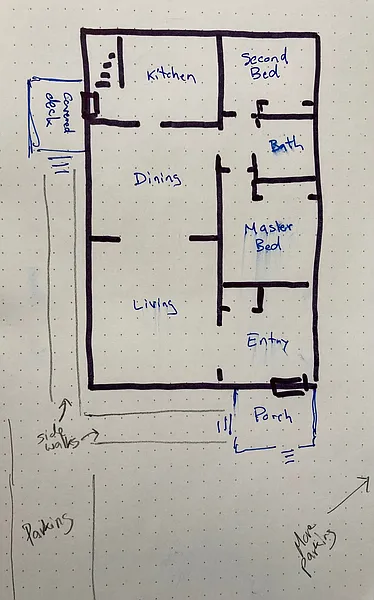 Kitchen
Second
Bed
Covered
deck
Bath
Dining
Master
Bed
Living
Entry
Porch
side
walks
Parking
More
parking